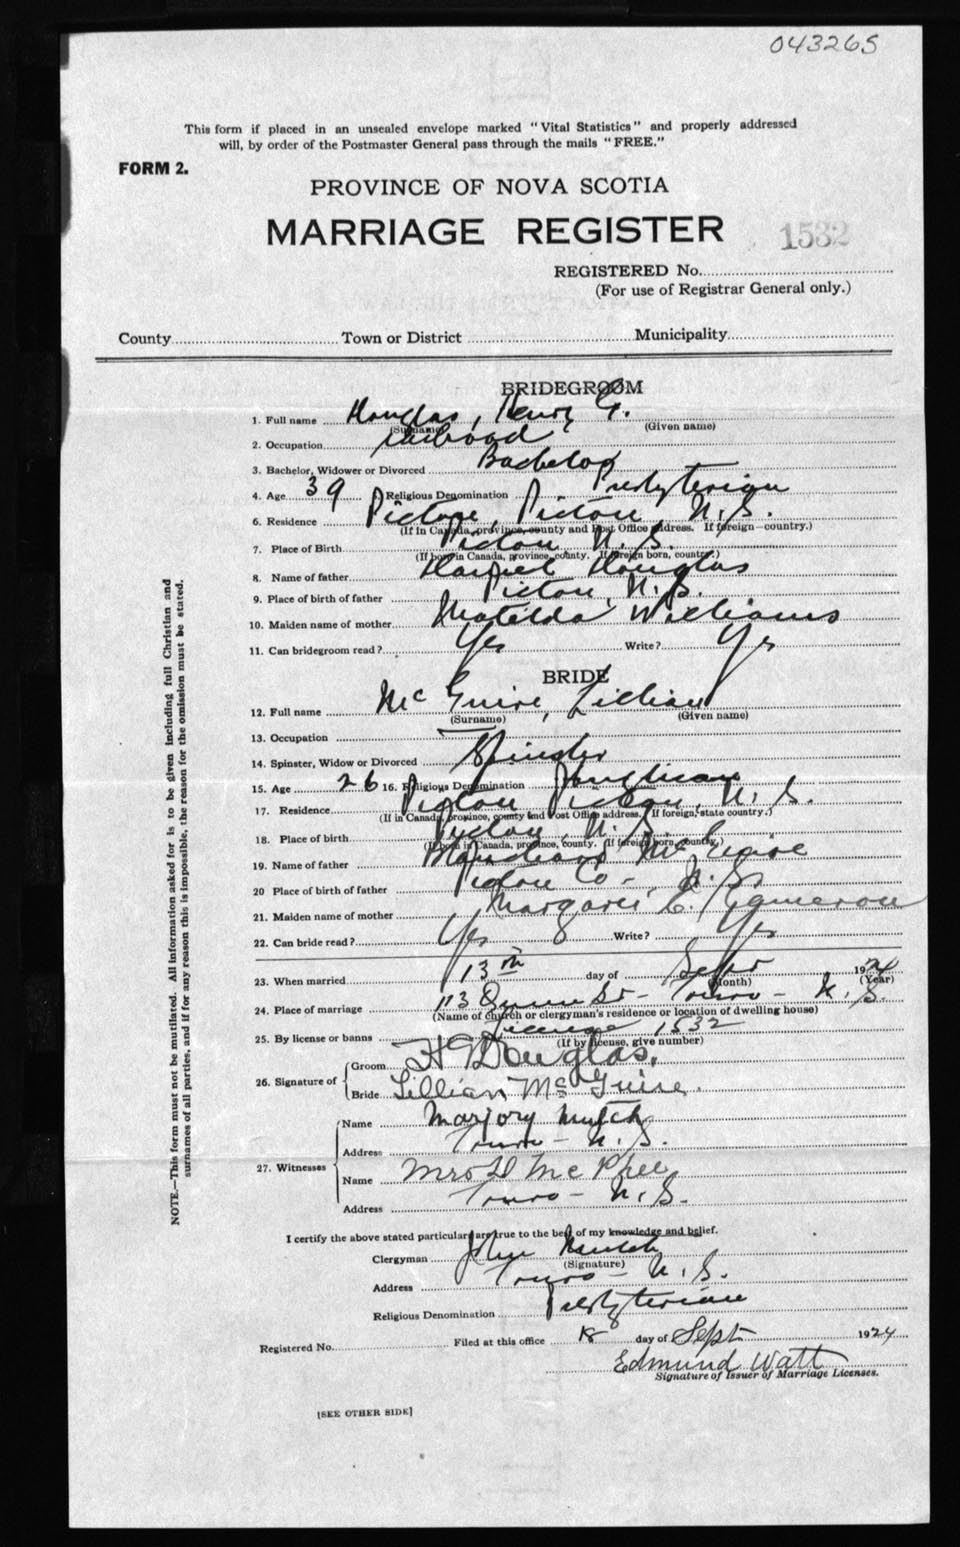 043265
This form if placed in an unsealed envelope marked "Vital Statistics" and properly addressed
will, by order of the Postmaster General pass through the mails "FREE."
FORM 2.
PROVINCE OF NOVA SCOTIA
MARRIAGE REGISTER
1532
REGISTERED No.
(For use of Registrar General only.)
County Town or District Municipality
BRIDEGROOM
1. Full name Douglas, Henry G.
(Surname) (Given name)
2. Occupation railroad
3. Bachelor, Widower or Divorced Bachelor
4. Age 39 5. Religious Denomination Presbyterian
6. Residence Pictou, Pictou N.S.
(If in Canada, province, county and Post Office address. If foreign—country.)
7. Place of Birth Pictou N.S.
(If born in Canada, province, county. If foreign born, country.)
8. Name of father Daniel Douglas
9. Place of birth of father Pictou, N.S.
10. Maiden name of mother Matilda Williams
11. Can bridegroom read? Yes Write? Yes
BRIDE
12. Full name McGuire, Lillian
(Surname) (Given name)
13. Occupation
14. Spinster, Widow or Divorced Spinster
15. Age 26 16. Religious Denomination
17. Residence Pictou Pictou, N.S.
(If in Canada, province, county and Post Office address. If foreign, state country.)
18. Place of birth Pictou, N.S.
(If born in Canada, province, county. If foreign born, country.)
19. Name of father McGuire
20 Place of birth of father Pictou Co - N.S.
21. Maiden name of mother Margaret C. Cameron
22. Can bride read? Yes Write? Yes
23. When married 13th day of Sept 1924
(Month) (Year)
24. Place of marriage 113 Queen St - Truro - N.S.
(Name of church or clergyman's residence or location of dwelling house)
25. By license or banns License 1532
(If by license, give number)
26. Signature of
Groom H G Douglas.
Bride Lillian McGuire.
27. Witnesses
Name Marjory Mutch
Address Truro - N.S.
Name Mrs D McPhee
Address Truro - N.S.
I certify the above stated particulars are true to the best of my knowledge and belief.
Clergyman John Mutch
(Signature)
Address Truro - N.S.
Religious Denomination Presbyterian
Registered No. Filed at this office 18 day of Sept 1924
Edmund Watt
Signature of Issuer of Marriage Licenses.
[SEE OTHER SIDE]
NOTE.—This form must not be mutilated. All information asked for is to be given including full Christian and
surnames of all parties, and if for any reason this is impossible, the reason for the omission must be stated.